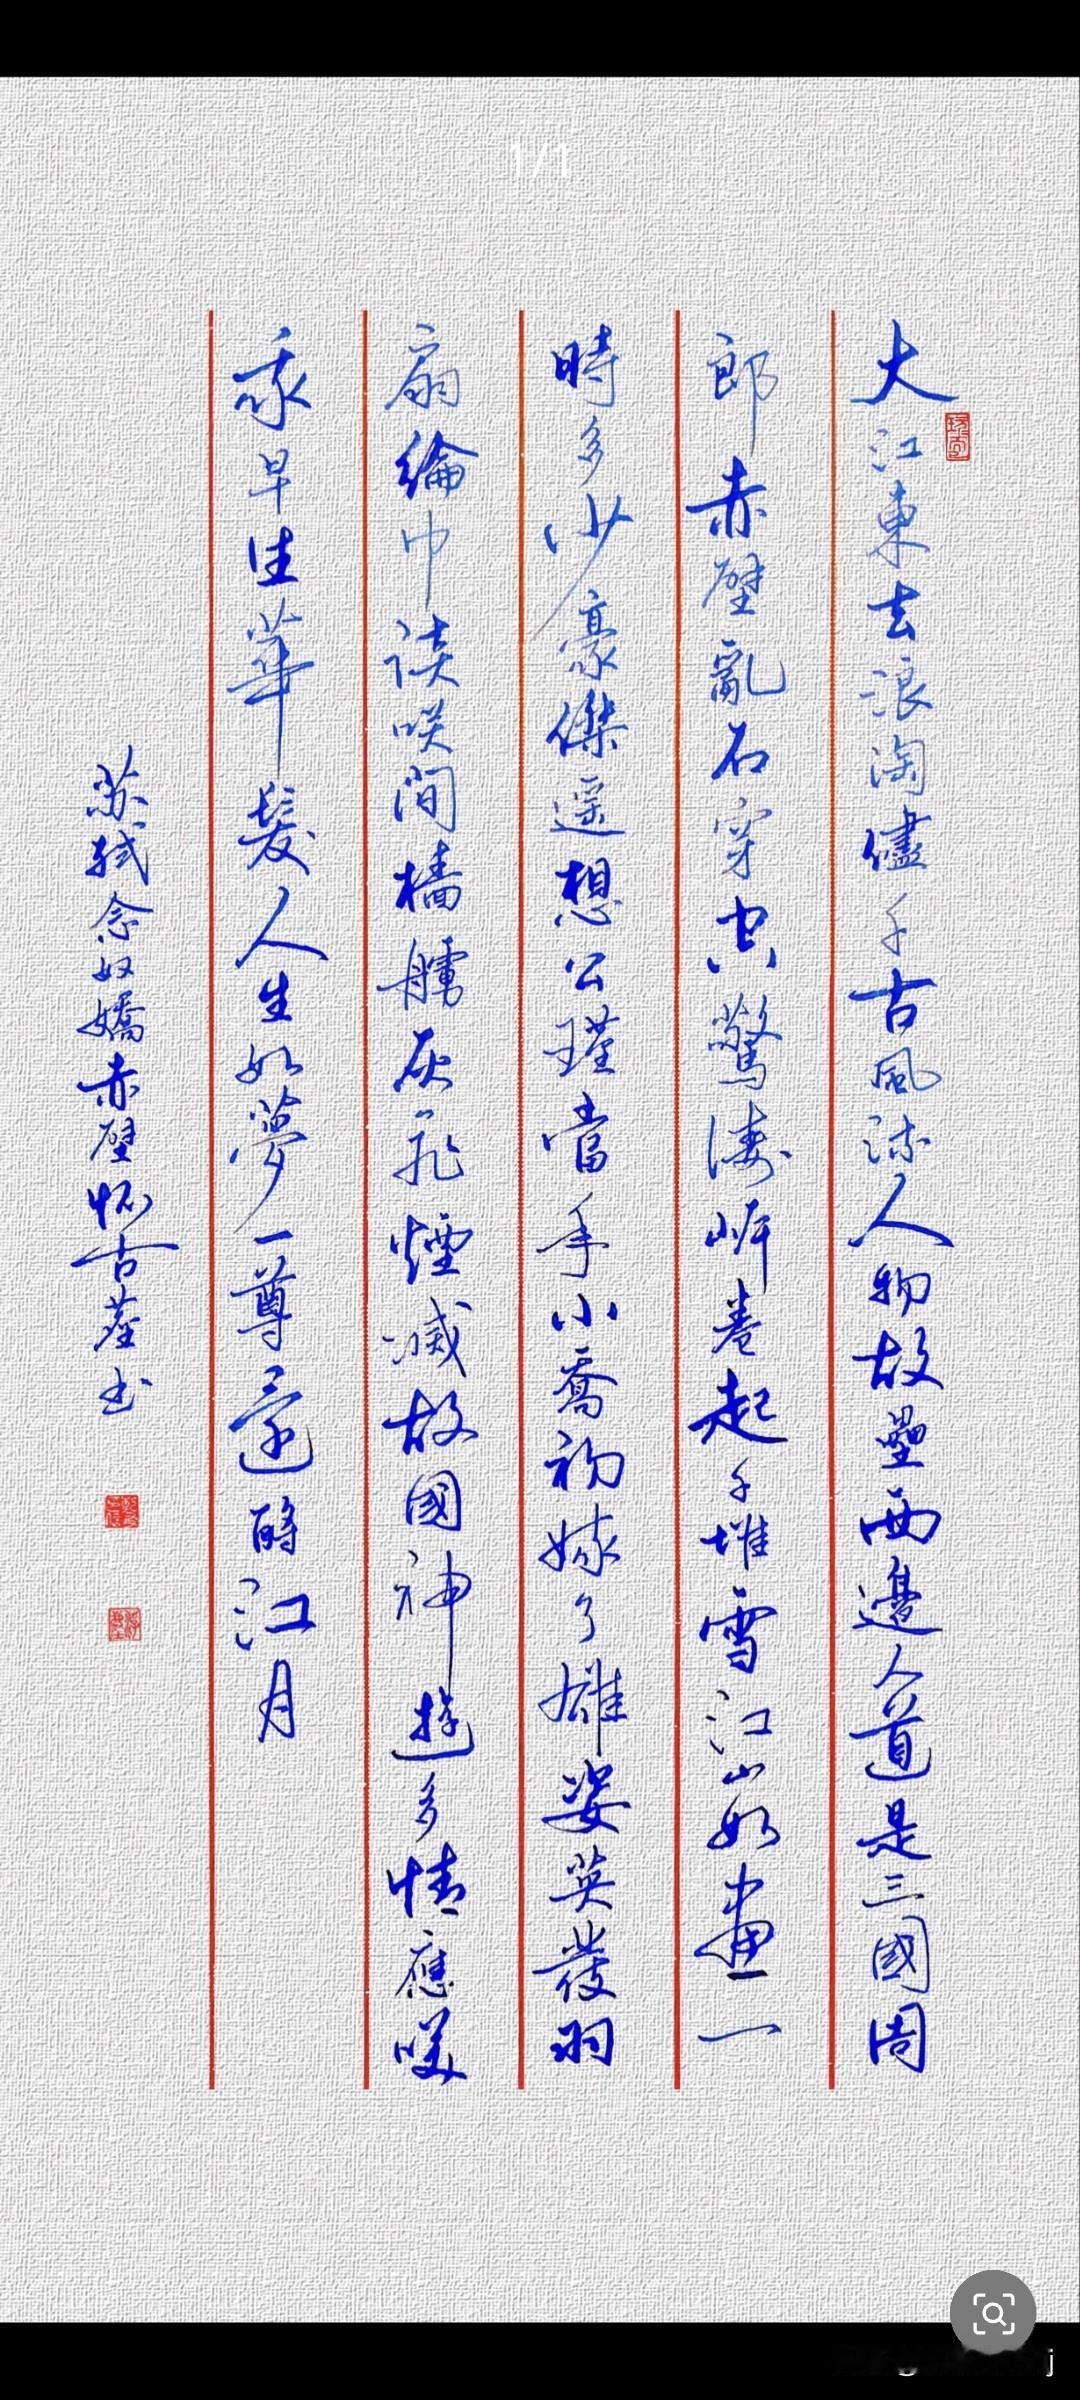 1/1
大江東去浪淘儘千古風流人物故壘西邊人道是三國周
郎赤壁亂石穿空驚濤岸卷起千堆雪江山如畫一
時多少豪傑遥想公瑾當年小喬初嫁了雄姿英發羽
扇綸巾談咲間檣艣灰飛煙滅故國神遊多情應咲
我早生華髮人生如夢一尊還酹江月
苏軾念奴嬌赤壁怀古 书
j